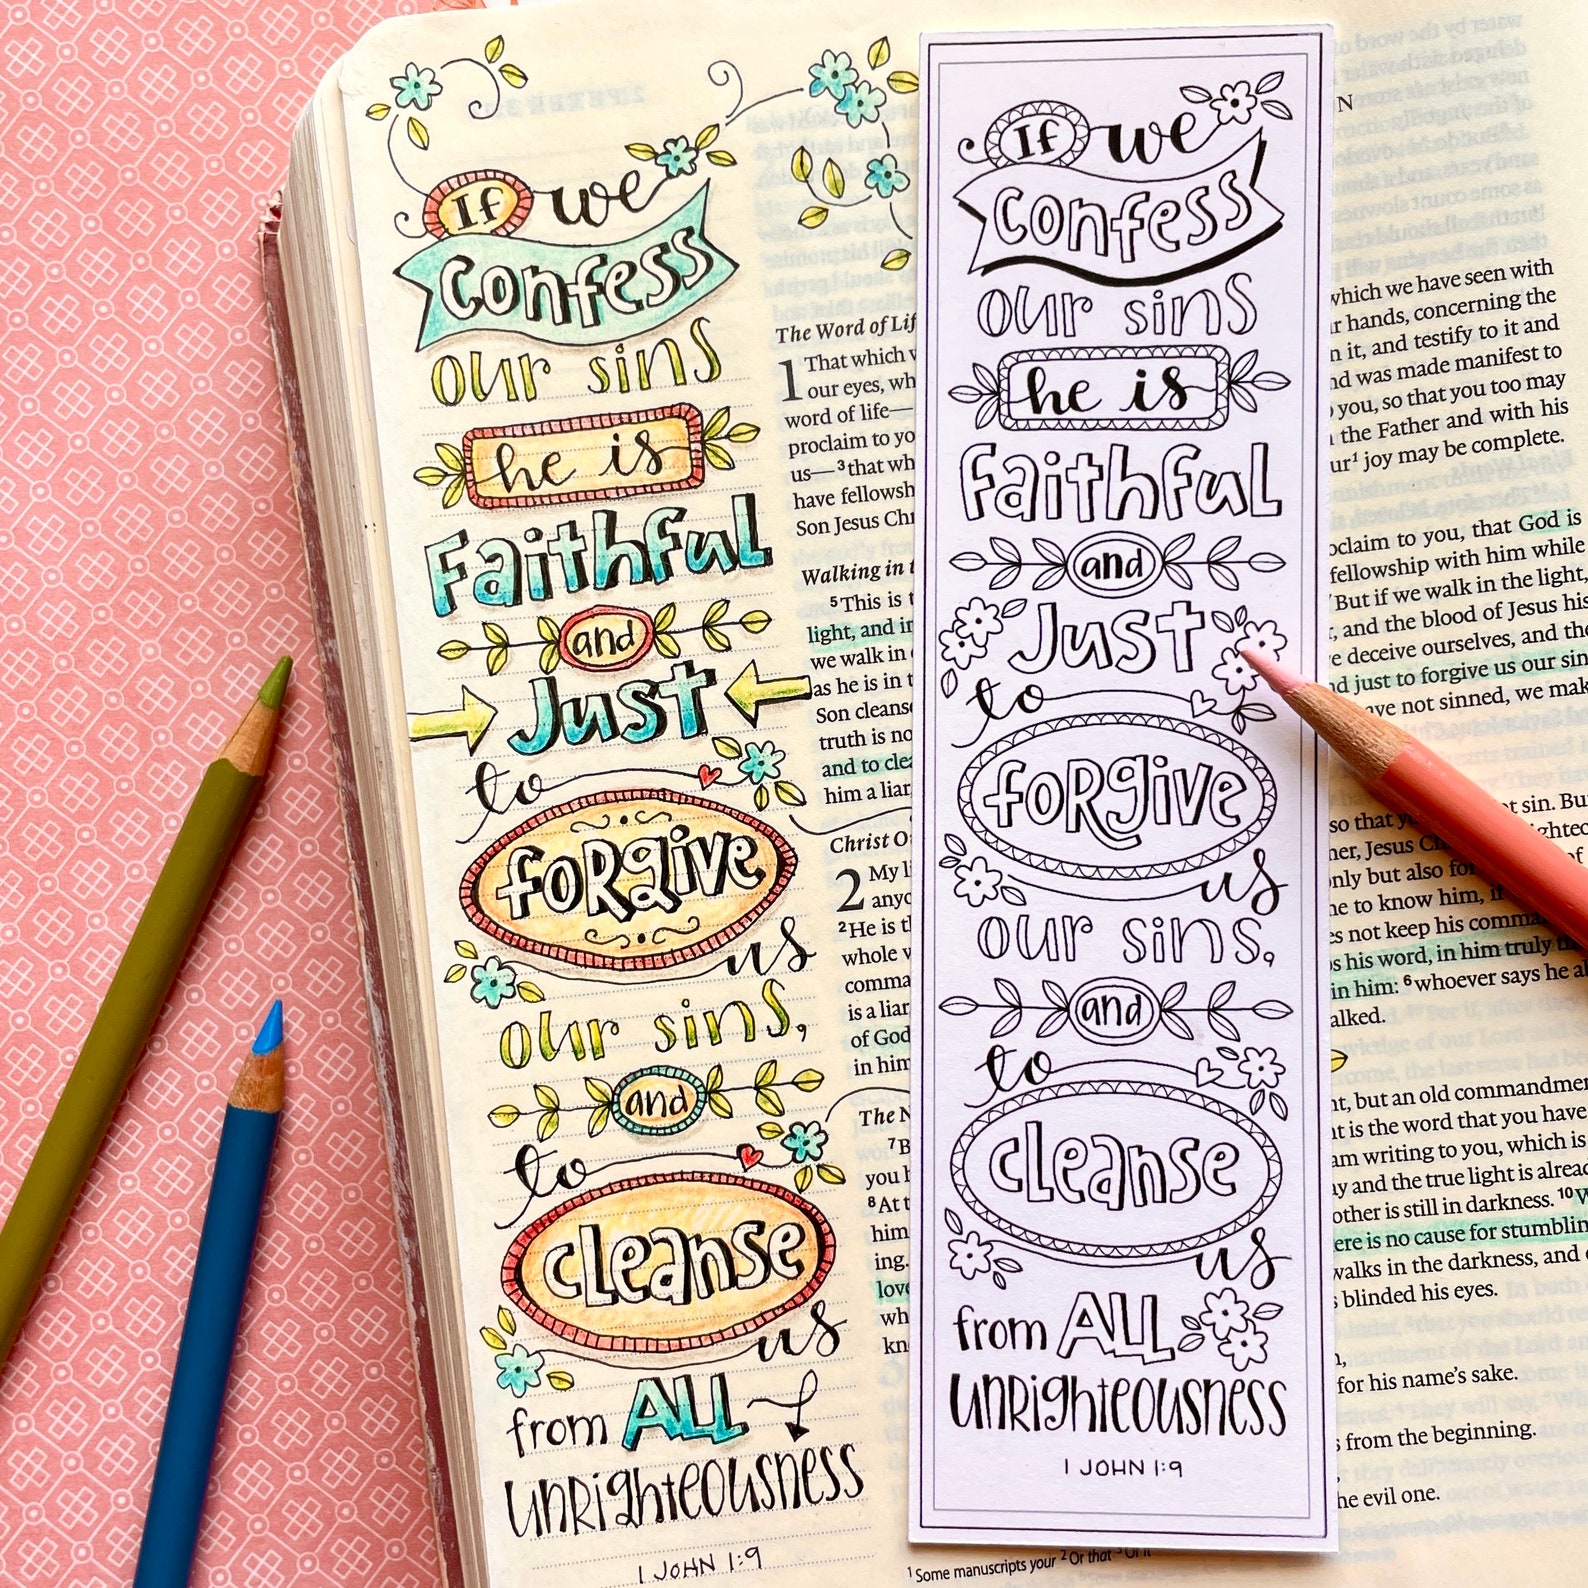 If we
confess
our sins
he is
Faithful
and
Just
to
forgive
us
our sins,
and
to
cleanse
us
from ALL
unrighteousness
1 JOHN 1:9
The Word of
1 That which
our eyes, wh
word of life—
proclaim to yo
us—³that wh
have fellowsh
Son Jesus Chr
Walking in
⁵This is
light, and in
we walk in
as he is in t
Son cleans
truth is no
and to clea
him a liar
Christ O
2 My
anyo
²He is th
whole
comma
is a liar
of God
in him
The N
⁷B
you h
⁸At t
him
ing.
love
wh
kn
If we
confess
our sins
he is
Faithful
and
Just
to
forgive
us
our sins,
and
to
cleanse
us
from ALL
unrighteousness
1 JOHN 1:9
N
which we have seen with
r hands, concerning the
n it, and testify to it and
nd was made manifest to
you, so that you too may
the Father and with his
ur¹ joy may be complete.
oclaim to you, that God is
fellowship with him while
But if we walk in the light,
, and the blood of Jesus his
e deceive ourselves, and the
nd just to forgive us our sin
ave not sinned, we mak
so that yo t sin. Bu
her, Jesus C ighteo
only but also fo of
me to know him, i
es not keep his comma
s his word, in him truly
in him: ⁶whoever says he a
alked.
t, but an old commandme
t is the word that you have
am writing to you, which is
y and the true light is alrea
other is still in darkness. ¹⁰W
ere is no cause for stumblin
walks in the darkness, and
blinded his eyes.
for his name's sake.
s from the beginning.
he evil one.
¹Some manuscripts your ²Or that